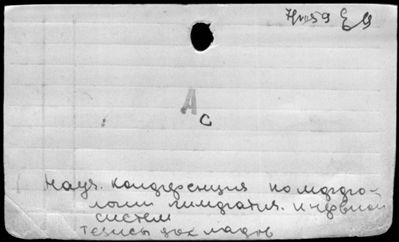 А
с
науч. конференция по морфо-
логии лимфатич. и нервной
систем
тезисы докладов